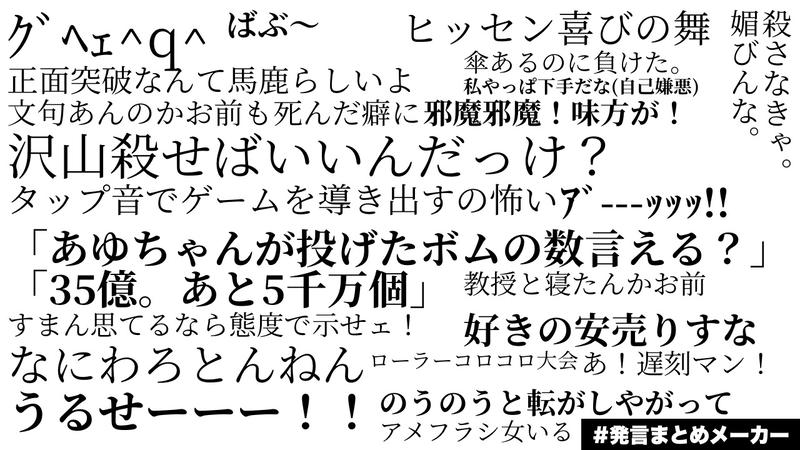 グﾞヘェ^q^
ばぶ〜
ヒッセン喜びの舞
殺さなきゃ。
媚びんな。
傘あるのに負けた。
正面突破なんて馬鹿らしいよ
私やっぱ下手だな(自己嫌悪)
文句あんのかお前も死んだ癖に
邪魔邪魔！味方が！
沢山殺せばいいんだっけ？
タップ音でゲームを導き出すの怖い
ｱﾞ---ｯｯｯ!!
「あゆちゃんが投げたボムの数言える？」
「35億。あと5千万個」
教授と寝たんかお前
すまん思てるなら態度で示せェ！
好きの安売りすな
なにわろとんねん
ローラーコロコロ大会
あ！遅刻マン！
うるせーーー！！
のうのうと転がしやがって
アメフラシ女いる
#発言まとめメーカー